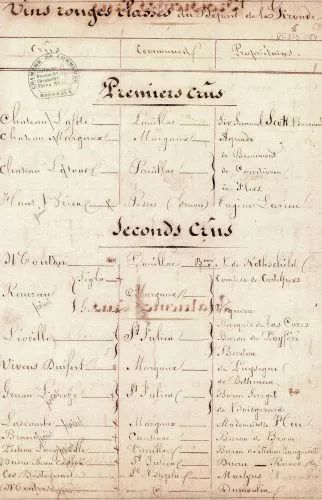 Vins rouges classés du Départ. de la Gironde
Crûs Communes Propriétaires
CHAMBRE DE COMMERCE BORDEAUX
Premiers Crûs
Chateau Lafite Pauillac Sir Samuel Scott
Chateau Margaux Margaux Aguado
Chateau Latour Pauillac de Beaumont
de Courtivron
de Flers
Haut Brion Pessac (Graves) Eugène Larrieu
Seconds Crûs
Mouton Pauillac Bon N. de Rothschild
Rauzan Ségla Margaux Comtesse de Castelpers
Léoville St Julien Marquis de las Cases
Baron de Poyféré
Barton
Vivens Durfort Margaux de Puységur
de Bethman
Gruau Laroze St Julien Baron Sarget
de Boisgerard
Lascombe Margaux Mademoiselle Hue
Brane Cantenac Baron de Brane
Pichon Longueville Pauillac Baron de Pichon Longueville
St Julien Ducru Ravez
Cos Destournel St Estèphe Martyns
Montrose Dumoulin